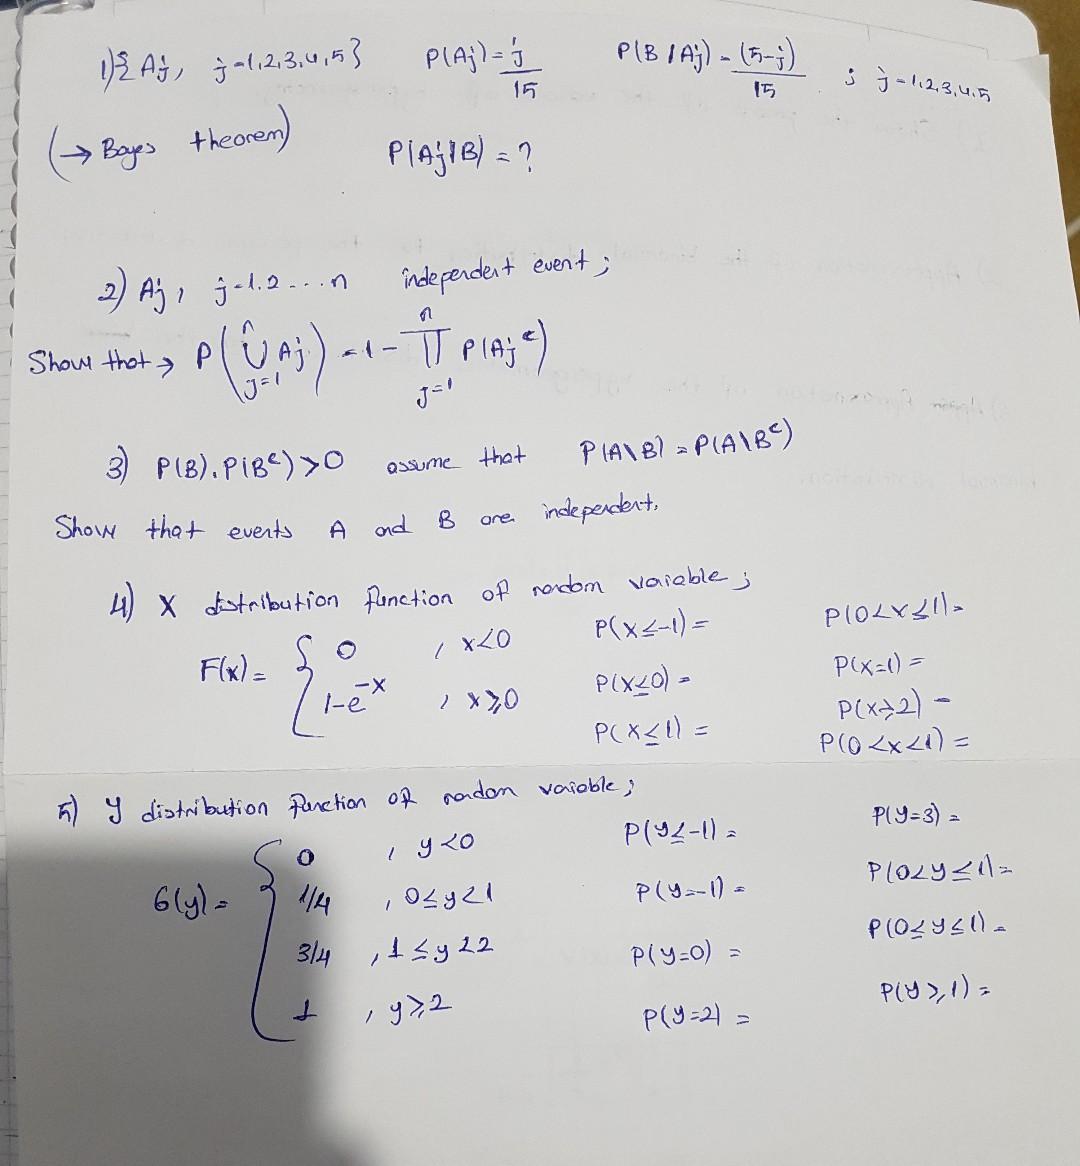 1) { Aj, j=1,2,3,4,5} P(Aj) = j/15 P(B/Aj) = (5-j)/15 ; j=1,2,3,4,5
(→ Bayes theorem) P(Aj|B) = ?
2) Aj, j=1.2...n independent event ;
Show that → P(n∪j=1 Aj) = 1 - n∏j=1 P(Aj^c)
3) P(B).P(B^c) > 0 assume that P(A\B) = P(A\B^c)
Show that events A and B are independent.
4) X distribution function of random variable ;
F(x) = { 0 , x<0
1-e^-x , x≥0
P(X≤-1) =
P(X≤0) =
P(X≤1) =
P(0<X≤1) =
P(X=1) =
P(X≥2) =
P(0<X<1) =
5) Y distribution function of random variable ;
G(y) = { 0 , y<0
1/4 , 0≤y<1
3/4 , 1≤y<2
1 , y≥2
P(Y≤-1) =
P(Y=-1) =
P(Y=0) =
P(Y=2) =
P(Y=3) =
P(0<Y≤1) =
P(0≤Y≤1) =
P(Y≥1) =